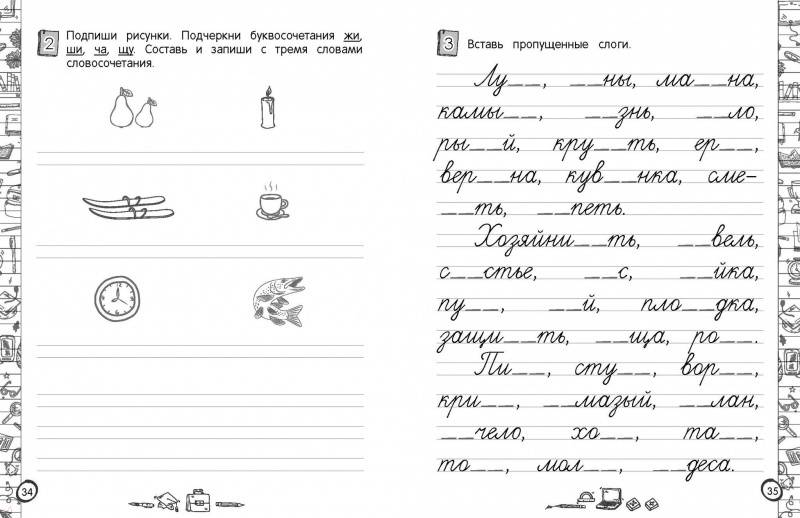 2 Подпиши рисунки. Подчеркни буквосочетания жи,
ши, ча, щу. Составь и запиши с тремя словами
словосочетания.
34
3 Вставь пропущенные слоги.
Лу__, __ны, ма__на,
камы__, __знь, __ло,
ры__й, кру__ть, ер__,
вер__на, кув__нка, сме-
__ть, __петь.
Хозяйни__ть, __вель,
с__стье, __с, __йка,
пу__, __й, пло__дка,
защи__ть, __ща, ро__.
Пи__, сту__, вор__,
кри__, __мазый, __лан,
__чело, хо__, та__,
то__, мол__, __деса.
35